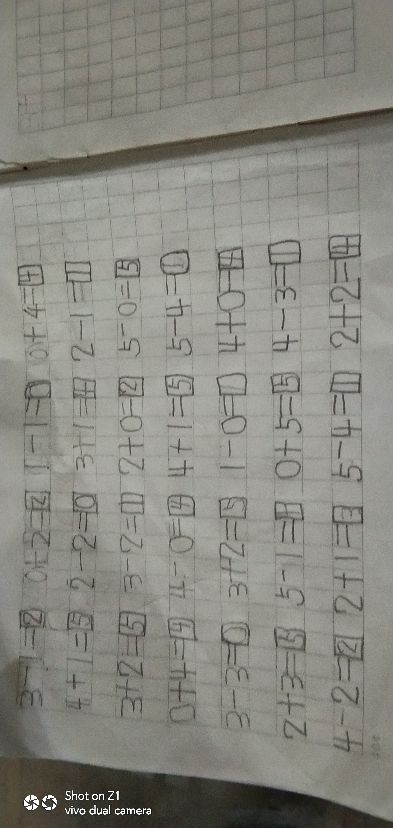 3-1=2 0+2=2 1-1=0 0+4=4
4+1=5 2-2=0 3+1=4 2-1=1
3+2=5 3-2=1 2+0=2 5-0=5
0+4=4 4-0=4 4+1=5 5-4=1
3-3=0 3+2=5 1-0=1 4+0=4
2+3=5 5-1=4 0+5=5 4-3=1
4-2=2 2+1=3 5-4=1 2+2=4
Shot on Z1
vivo dual camera